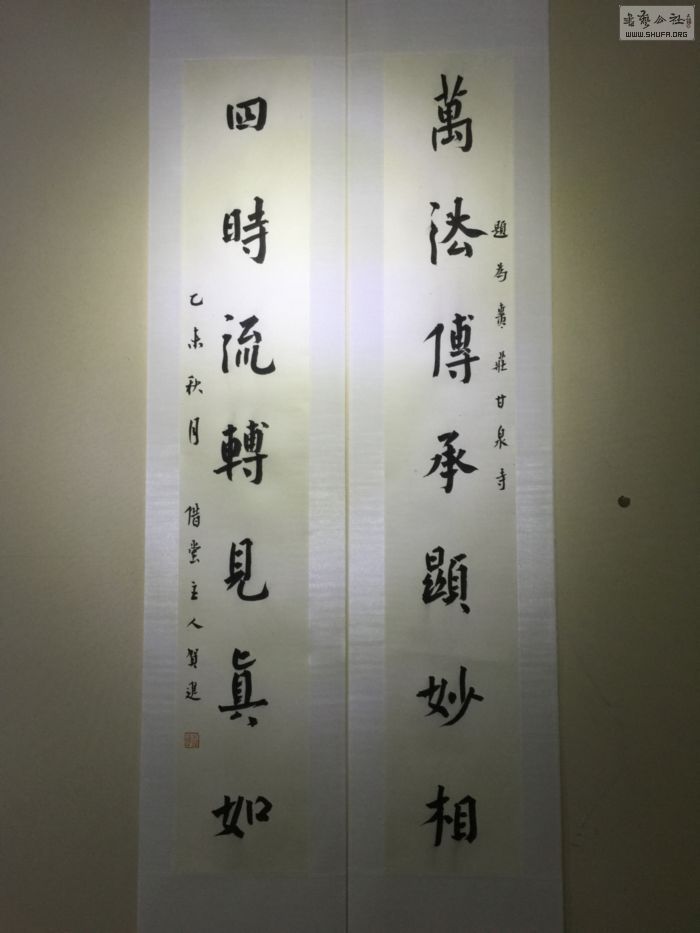 萬法傳承顯妙相
題為貴莊甘泉寺
四時流轉見真如
乙未秋月 借堂主人賀進
書藝公社
WWW.SHUFA.ORG